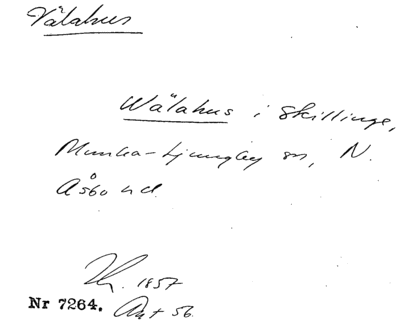 Välahus
Wälahus i Skillinge,
Munka-Ljungby sn, N.
Åsbo hd.
1857
Nr 7264. Ant 56.